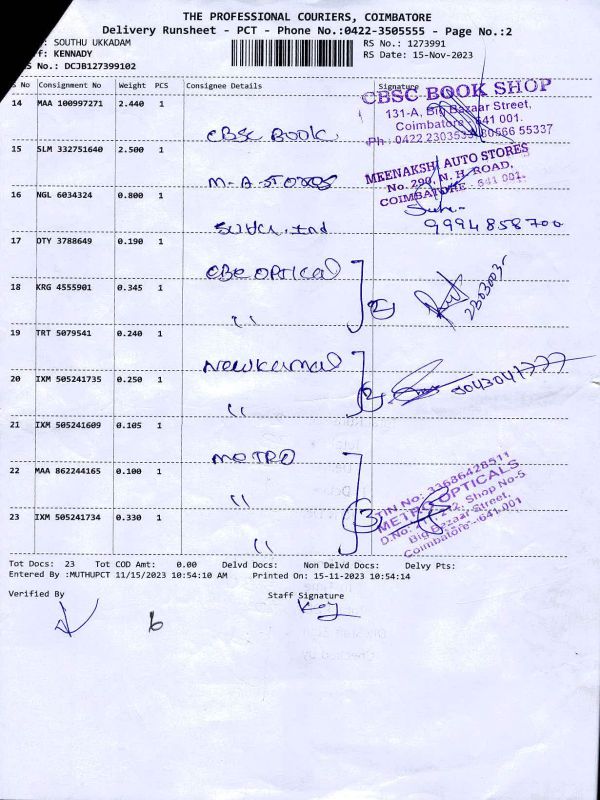 THE PROFESSIONAL COURIERS, COIMBATORE
Delivery Runsheet - PCT - Phone No.:0422-3505555 - Page No.:2
: SOUTHU UKKADAM
RS No.: 1273991
f: KENNADY
RS Date: 15-Nov-2023
S No.: DCJB127399102
s No Consignment No Weight PCS Consignee Details Signature
14 MAA 100997271 2.440 1 CBSC BOOK.
CBSC BOOK SHOP
131-A, Big Bazaar Street,
Coimbatore - 641 001.
Ph: 0422 2303535, 80566 55337
15 SLM 332751640 2.500 1 M-A-STORES
MEENAKSHI AUTO STORES
No. 290, N. H. ROAD,
COIMBATORE - 641 001.
16 NGL 6034324 0.800 1
9994858700
17 DTY 3788649 0.190 1 CBE OPTICAL
18 KRG 4555901 0.345 1 "
2
19 TRT 5079541 0.240 1 New Kamal
20 IXM 505241735 0.250 1 "
2
21 IXM 505241609 0.105 1 METRO
22 MAA 862244165 0.100 1 "
23 IXM 505241734 0.330 1 "
3
TIN No: 33686428511
METRO OPTICALS
Shop No-5
Big Bazaar Street,
Coimbatore - 641 001
Tot Docs: 23 Tot COD Amt: 0.00 Delvd Docs: Non Delvd Docs: Delvy Pts:
Entered By :MUTHUPCT 11/15/2023 10:54:10 AM Printed On: 15-11-2023 10:54:14
Verified By Staff Signature
6